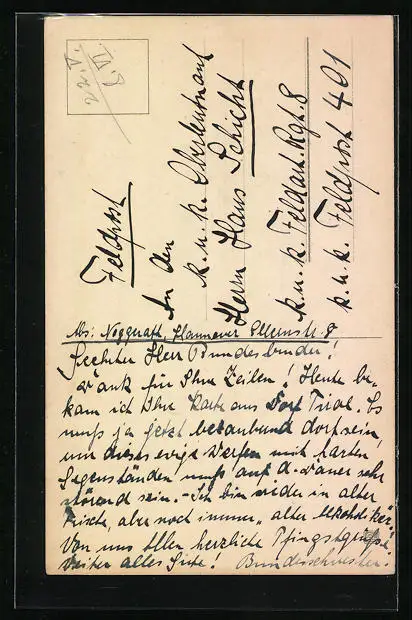 22. V.
8. VI.
Feldpost
An den
k. u. k. Oberleutnant
Herrn Hans Schicht
k. u. k. Feldart. Rgt. 8
k. u. k. Feldpost 401
Abs: Noggerath, Hannover Ellernstr. 8
Geehrter Herr Bundesbruder!
Dank für Ihre Zeilen! Heute be-
kam ich Ihre Karte aus Fort Es
muß ja jetzt betäubend dort sein,
um dieses ewige Werfen mit harten
Gegenständen muß auf d. Dauer sehr
störend sein. - Ich bin wieder in alter
Frische, aber noch immer "alter
Von uns Allen herzliche Pfingstgrüße!
Weiter alles Gute! Bundesschwester.